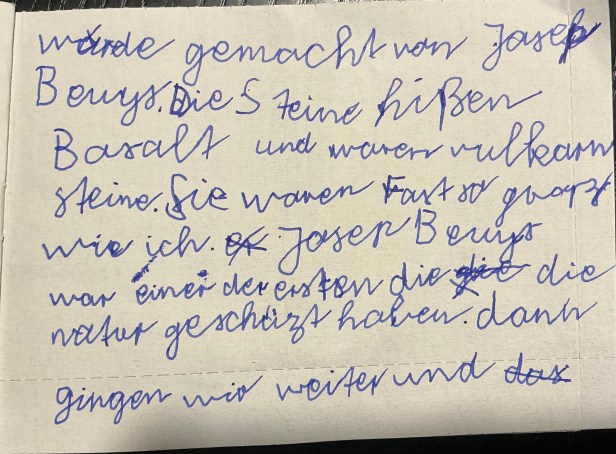 wurde gemacht von Josep
Beuys. Die Steine hißen
Basalt und waren vulkann
steine. Sie waren Fast so groos
wie ich. Josep Beuys
war einer der ersten die die
natur geschüzt haben. dann
gingen wir weiter und